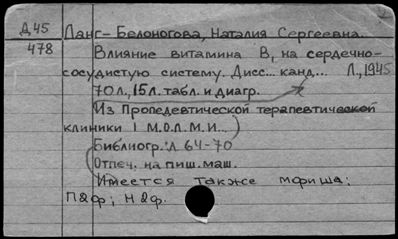 Д 45 Ланг-Белоногова, Наталия Сергеевна.
478 Влияние витамина B₁ на сердечно-
сосудистую систему. Дисс... канд... Л., 1945
70 л., 15 л. табл. и диагр.
Из Пропедевтической терапевтической
клиники I М.О.Л.М.И...
Библиогр.: л 64-70
Отпеч. на пиш. маш.
Имеется также мфиша:
П2ф; Н2ф.